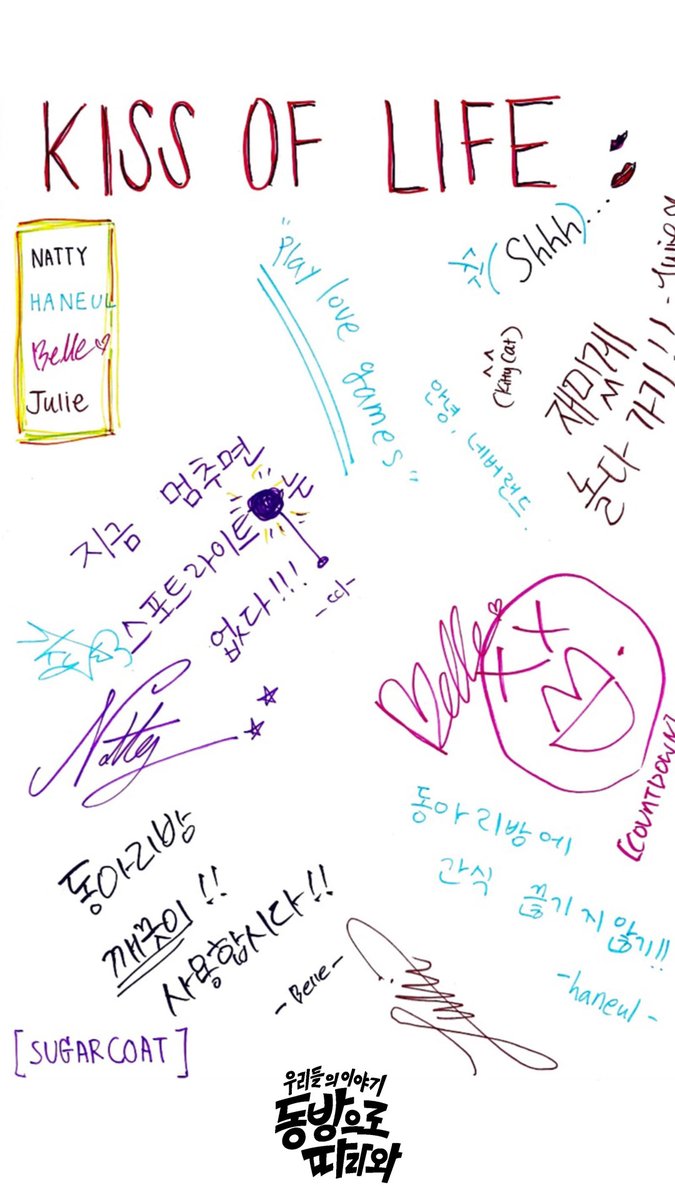 KISS OF LIFE
NATTY
HANEUL
Belle
Julie
"Play love games"
쉿 (Shhh)...
(Kitty Cat)
안녕, 네버랜드.
재미있게
놀다 가기!!
- Julie -
지금 멈추면
스포트라이트는
없다!!!
Natty
Belle
[COUNTDOWN]
동아리방에
간식 끊기지않기!!
-haneul-
동아리방
깨끗이!!
사용합시다!!
- Belle -
[SUGARCOAT]
우리들의이야기
동방으로
따라와